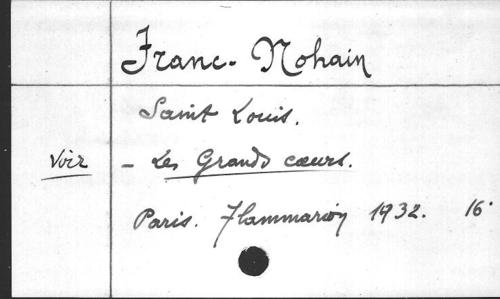 Franc-Nohain
Saint Louis.
Voir - Les Grands cœurs.
Paris. Flammarion 1932. 16°